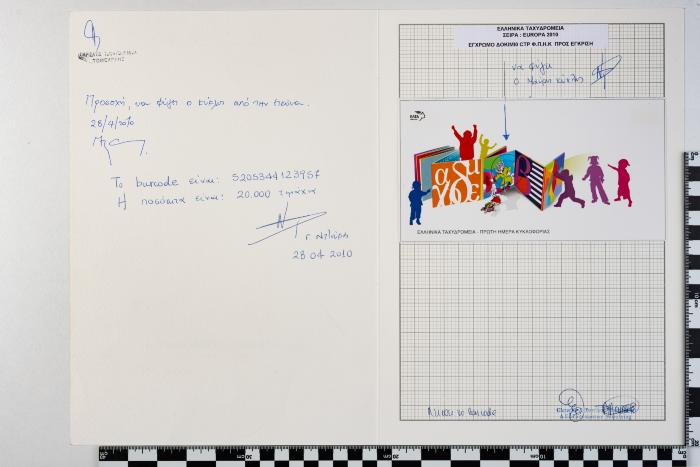 Προσοχή, να φύγει ο κύκλος από την πιένα.
28/4/2010
Το barcode είναι: 5205344123957
Η ποσότητα είναι: 20.000 τεμάχια
28 04 2010
ΕΛΛΗΝΙΚΑ ΤΑΧΥΔΡΟΜΕΙΑ
ΣΕΙΡΑ : EUROPA 2010
ΕΓΧΡΩΜΟ ΔΟΚΙΜΙΟ CTP Φ.Π.Η.Κ ΠΡΟΣ ΕΓΚΡΙΣΗ
να φύγει
ο μαύρος κύκλος
ΕΛΤΑ
ΕΛΛΗΝΙΚΑ ΤΑΧΥΔΡΟΜΕΙΑ - ΠΡΩΤΗ ΗΜΕΡΑ ΚΥΚΛΟΦΟΡΙΑΣ
το barcode